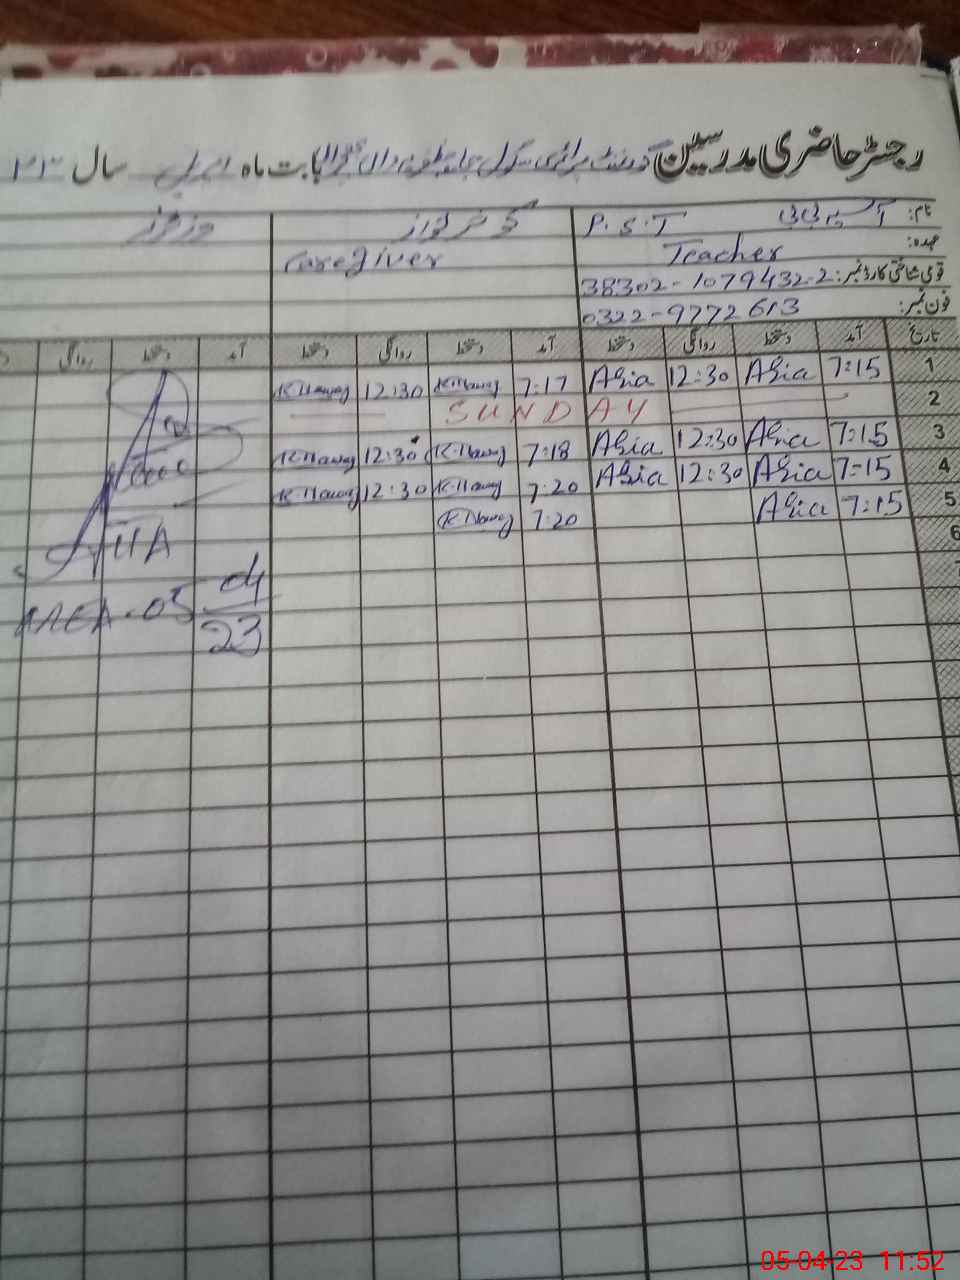 رجسٹر حاضری مدرسین گورنمنٹ پرائمری سکول بابت ماہ اپریل سال ۲۳
نام: آسیہ بی بی P.S.T
وزٹرز
عہدہ: Teacher
Caregiver
قومی شناختی کارڈ نمبر: 38302-1079432-2
فون نمبر: 0322-9772613
تاریخ آمد دستخط روانگی دستخط آمد دستخط روانگی دستخط آمد دستخط روانگی
1 7:15 Asia 12:30 Asia 7:17 K.Nawaz 12:30 K.Nawaz
2 SUNDAY
3 7:15 Asia 12:30 Asia 7:18 K.Nawaz 12:30 K.Nawaz
4 7:15 Asia 12:30 Asia 7:20 K.Nawaz 12:30 K.Nawaz
5 7:15 Asia 7:20 K.Nawaz
6
7
05 04
23
05-04-23 11:52